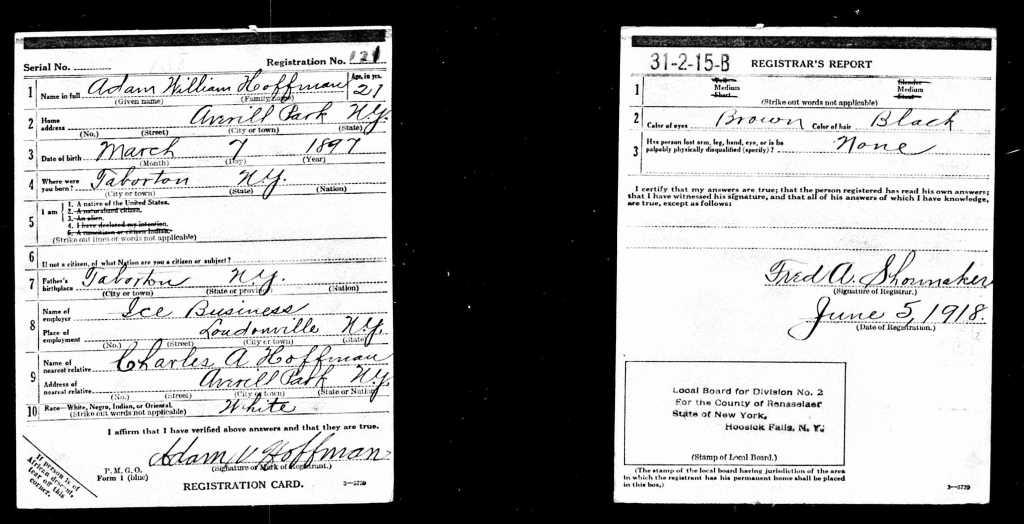 Serial No. Registration No. 121
1 Name in full Adam William Hoffman Age, in yrs. 21
(Given name) (Family name)
2 Home address Averill Park N.Y.
(No.) (Street) (City or town) (State)
3 Date of birth March 7 1897
(Month) (Day) (Year)
4 Where were you born? Taborton N.Y.
(City or town) (State) (Nation)
5 I am
1. A native of the United States.
2. A naturalized citizen.
3. An alien.
4. I have declared my intention.
5. A noncitizen or citizen Indian.
(Strike out lines or words not applicable)
6 If not a citizen, of what Nation are you a citizen or subject?
7 Father's birthplace Taborton N.Y.
(City or town) (State or province) (Nation)
8 Name of employer Ice Business
Place of employment Loudonville N.Y.
(No.) (Street) (City or town) (State)
9 Name of nearest relative Charles A Hoffman
Address of nearest relative Averill Park N.Y.
(No.) (Street) (City or town) (State or Nation)
10 Race—White, Negro, Indian, or Oriental. White
(Strike out words not applicable)
I affirm that I have verified above answers and that they are true.
Adam W Hoffman
(Signature or Mark of Registrant.)
P. M. G. O.
Form 1 (blue)
REGISTRATION CARD. 3—5739
If person is of
African descent,
tear off this
corner.
31-2-15-B REGISTRAR'S REPORT
1 Tall Slender
Medium Medium
Short Stout
(Strike out words not applicable)
2 Color of eyes Brown Color of hair Black
3 Has person lost arm, leg, hand, eye, or is he
palpably physically disqualified (specify)? None
I certify that my answers are true; that the person registered has read his own answers;
that I have witnessed his signature, and that all of his answers of which I have knowledge,
are true, except as follows:
Fred A. Shoemaker
(Signature of Registrar.)
June 5, 1918.
(Date of Registration.)
Local Board for Division No. 2
For the County of Rensselaer
State of New York,
Hoosick Falls, N. Y.
(Stamp of Local Board.)
(The stamp of the local board having jurisdiction of the area
in which the registrant has his permanent home shall be placed
in this box.) 3—5739